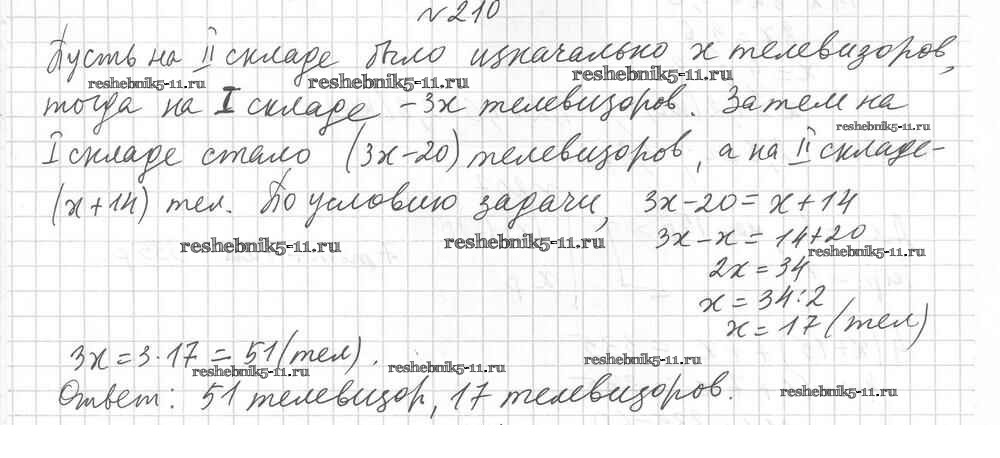 №210
Пусть на II складе было изначально x телевизоров,
reshebnik5-11.ru reshebnik5-11.ru reshebnik5-11.ru
тогда на I складе -3x телевизоров. Затем на
reshebnik5-11.ru
I складе стало (3x-20) телевизоров, а на II складе-
(x+14) тел. По условию задачи, 3x-20=x+14
reshebnik5-11.ru reshebnik5-11.ru 3x-x=14+20
reshebnik5-11.ru
2x=34
x=34:2
x=17(тел)
3x=3·17=51(тел).
reshebnik5-11.ru reshebnik5-11.ru reshebnik5-11.ru
Ответ: 51 телевизор, 17 телевизоров.
reshebnik5-11.ru